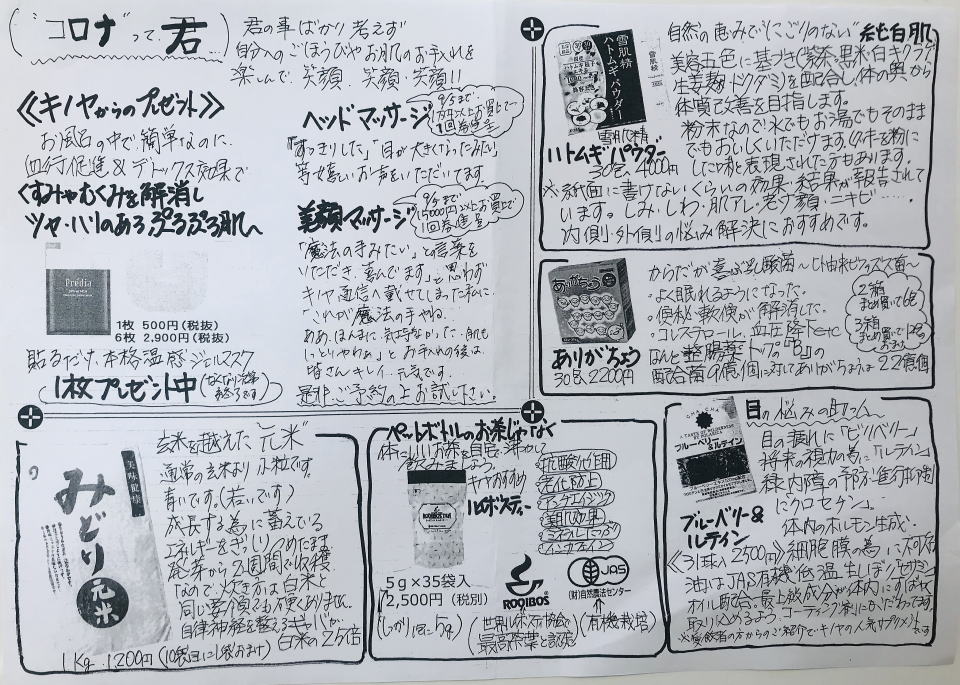 ("コロナ"って君…)
君の事ばかり考えず
自分へのごほうびやお肌のお手入れを
楽しんで、笑顔、笑顔、笑顔!!
《キノヤからのプレゼント》
お風呂の中で、簡単なのに、
血行促進&デトックス効果で
くすみやむくみを解消し
ツヤ・ハリのあるぷるぷる肌へ
Predia
1枚 500円(税抜)
6枚 2,900円(税抜)
貼るだけ、本格温感ジェルマスク
1枚プレゼント中
(なくなり次第終了です)
ヘッドマッサージ
「すっきりした」「目が大きくなったみたい」
等、嬉しいお声をいただいてます。
美顔マッサージ
9/5まで
15000円以上お買上で
1回券進呈
「魔法の手みたい」と言葉を
いただき、喜んでます」と思わず
キノヤ通信へ載せてしまった私に
「これが魔法の手やね。
ああ、ほんまに気持ちよかった…肌も
しっとりやわぁ」とお手入れの後は、
皆さんキレイ、元気です。
是非ご予約の上お試し下さい。
自然の恵みで"にごり"のない純白肌
美容五色に基づき、紫茶・黒米・白キクラゲ
生姜麹・ドクダミを配合し、体の奥から
体質改善を目指します。
粉末なので水でもお湯でもそのまま
でもおいしくいただけます。
したお味と表現された方もあります。
雪肌精
ハトムギパウダー
雪肌精
ハトムギパウダー
30包 4000円
※紙面に書けないくらいの効果・結果が報告されて
います。しみ・しわ・肌アレ・老け顔・ニキビ……。
内側・外側の悩み解決におすすめです。
からだが喜ぶ乳酸菌〜ヒト由来ビフィズス菌〜
・よく眠れるようになった。
・便秘・軟便が解消した。
・コレステロール、血圧降下etc
なんと整腸薬トップの『B』の
配合菌9億個に対してありがちょうは22億個
2箱
まとめ買いで6包
3箱
まとめ買いで12包
ありがちょう
ありがちょう
30包 2200円
玄米を越えた"元米"
通常の玄米より小粒です。
青いです。(若いです)
成長する為に蓄えている
エネルギーをぎっしりつめたまま
なので、炊き方は白米と
同じ。等価でも不便ありません。
自律神経を整えるギャバが
白米の25倍
美味龍積
みどり元米
1kg 1200円(10袋目に1袋おまけ)
ペットボトルのお茶じゃなく
体にいいお茶を自宅で沸かして
飲みましょう。
キノヤおすすめ
ルイボスティー
抗酸化作用
老化防止
アンチエイジング
美肌効果
ミネラルたっぷり
ノンカフェイン
ROOIBOS TEA
5g×35袋入
2,500円(税別)
(しっかり1包に5g)
ROOIBOS
(世界ルイボスティー協会で
最高茶葉と認定)
JAS
(財)自然農法センター
(有機栽培)
目の悩みの
目の疲れに「ビルベリー」
将来の視力の為に「ルテイン」
緑内障の予防・進行抑制
に「クロセチン」。
体内のホルモン生成・
細胞膜の為に不可欠
油はJAS有機 低温
オイル配合。最上級成分が体内にすばやく
取り込めるよう、コーティング剤にもこだわってます。
ブルーベリー&ルテイン
ブルーベリー&
ルテイン
《31球入 2500円》
※愛飲者の方からのご紹介でキノヤの人気サプリメントです